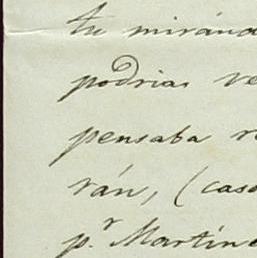 tu miránd
podrias ve
pensaba re
rán, (caso
p.r Martine